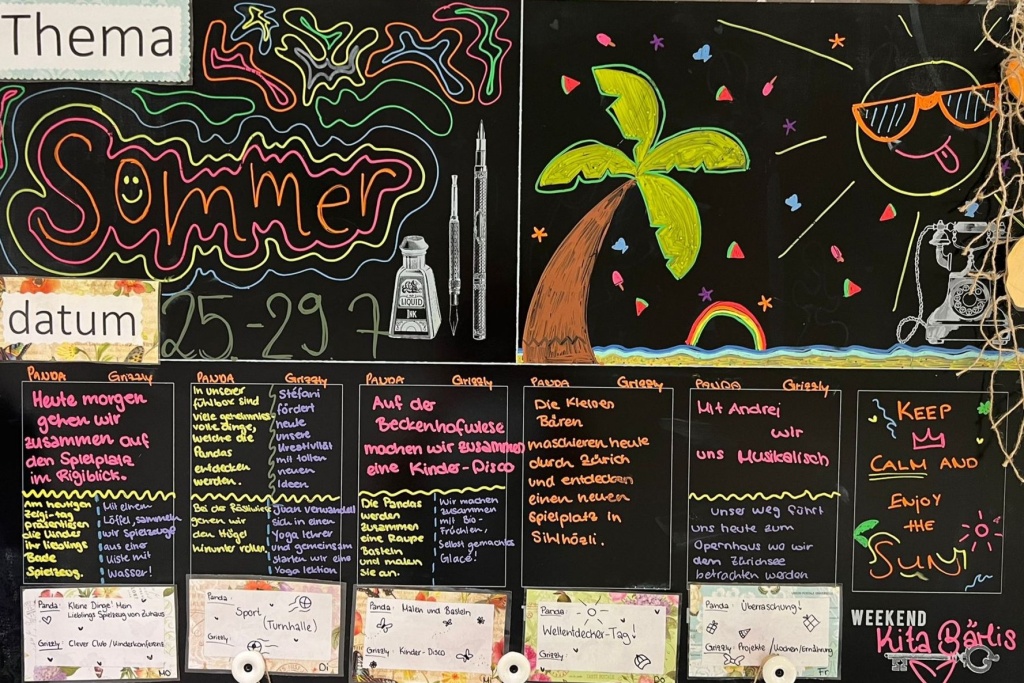 Thema
Sommer
LIQUID
INK
datum
25.-29 7
PANDA Grizzly
Heute morgen
gehen wir
zusammen auf
den Spielplatz
im Rigiblick.
Am heutigen
Zeigi-tag
präsentieren
die Kinder
ihr lieblings
Bade
Spielzeug.
Mit einem
Löffel, sammeln
wir Spielzeuge
aus einer
Kiste mit
Wasser!
PANDA Grizzly
In unserer
fühlbox sind
viele geheimnis-
volle dinge,
welche die
Pandas
entdecken
werden.
Stéfani
fördert
heute
unsere
Kreativität
mit tollen
neuen
Ideen
Bei der Rösliwiese
gehen wir
den Hügel
hinunter rollen.
Juan verwandelt
sich in einen
Yoga lehrer
und gemeinsam
starten wir eine
Yoga lektion
PANDA Grizzly
Auf der
Beckenhofwiese
machen wir zusammen
eine Kinder-Disco
Die Pandas
werden
zusammen
eine Raupe
Basteln
und malen
sie an.
Wir machen
zusammen
mit Bio-
Früchten,
Selbst gemachtes
Glacé!
PANDA Grizzly
Die Kleinen
Bären
maschieren heute
durch Zürich
und entdecken
einen neuen
Spielplatz in
Sihlhözli.
PANDA Grizzly
Mit Andrej
wir
uns Musikalisch
Unser weg führt
uns heute zum
Opernhaus wo wir
dem Zürichsee
betrachten werden
KEEP
CALM AND
ENJOY
THE
SUN
Panda: Kleine Dinge! Mein
Lieblings Spielzeug von Zuhause
Grizzly: Clever Club / Kinderkonferenz
MO
Panda:
Sport
(Turnhalle)
Grizzly:
Di
Panda: Malen und Basteln
Grizzly: Kinder-Disco
Mi
Panda:
Weltentdecker-Tag!
Grizzly:
Do
Panda: Überraschung!
Grizzly: Projekte / Kochen/Ernährung
Fr
WEEKEND
Kita Bärlis